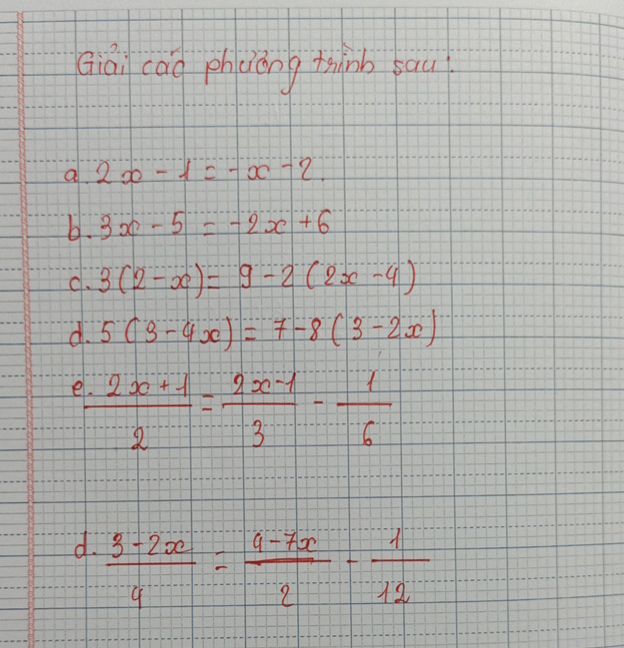 Giải các phương trình sau:
a. 2x - 1 = -x - 2.
b. 3x - 5 = -2x + 6
c. 3(2 - x) = 9 - 2(2x - 4)
d. 5(3 - 4x) = 7 - 8(3 - 2x)
e. (2x + 1)/2 = (2x - 1)/3 - 1/6
d. (3 - 2x)/4 = (4 - 7x)/2 - 1/12